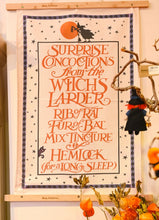 SURPRISE
CONCOCTIONS
from the
WITCH'S
LARDER
RIB of RAT
FUR of BAT
MIX TINCTURE
of
HEMLOCK
(for a LONG SLEEP)